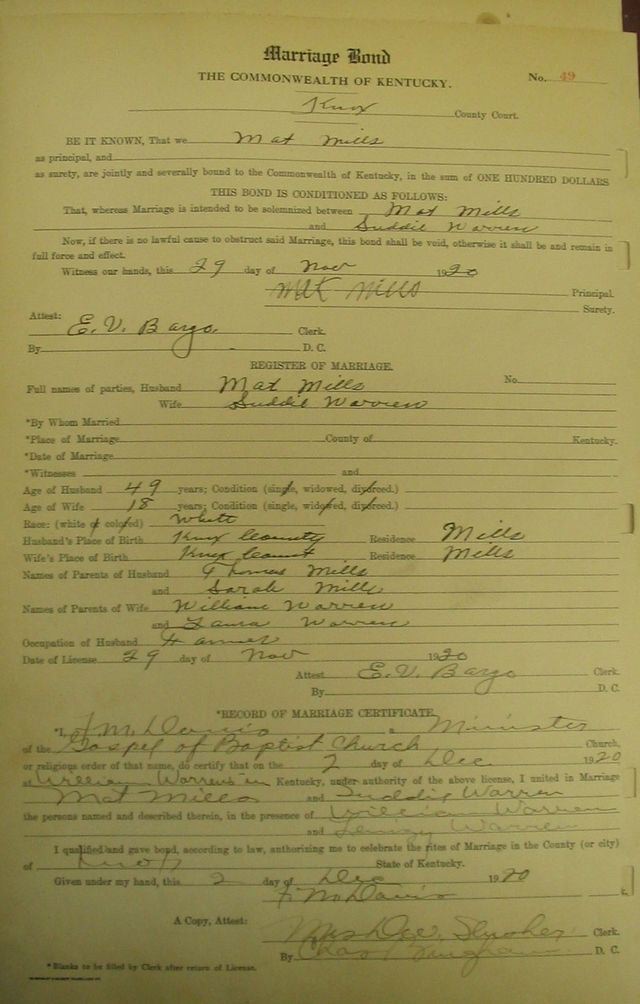 Marriage Bond
THE COMMONWEALTH OF KENTUCKY.
No. 49
Knox County Court.
BE IT KNOWN, That we Mat Mills
as principal, and
as surety, are jointly and severally bound to the Commonwealth of Kentucky, in the sum of ONE HUNDRED DOLLARS
THIS BOND IS CONDITIONED AS FOLLOWS:
That, whereas Marriage is intended to be solemnized between Mat Mills
and Suddie Warren
Now, if there is no lawful cause to obstruct said Marriage, this bond shall be void, otherwise it shall be and remain in
full force and effect.
Witness our hands, this 29 day of Nov 1920
Mills Principal.
Surety.
Attest:
E. V. Bargo Clerk.
By D. C.
REGISTER OF MARRIAGE.
Full names of parties, Husband Mat Mills No.
Wife Suddie Warren
*By Whom Married
*Place of Marriage County of Kentucky.
*Date of Marriage
*Witnesses and
Age of Husband 49 years; Condition (single, widowed, divorced.)
Age of Wife 18 years; Condition (single, widowed, divorced.)
Race: (white or colored) White
Husband's Place of Birth Knox County Residence Mills
Wife's Place of Birth Knox Count Residence Mills
Names of Parents of Husband Thomas Mills
and Sarah Mills
Names of Parents of Wife William Warren
and Laura Warren
Occupation of Husband Farmer
Date of License 29 day of Nov 1920
Attest E. V. Bargo Clerk.
By D. C.
*RECORD OF MARRIAGE CERTIFICATE
*I, F. M. Davis a Minister
of the Gospel of Baptist Church Church,
or religious order of that name, do certify that on the 2 day of Dec 1920
at William Warrens in Kentucky, under authority of the above license, I united in Marriage
Mat Mills and Suddie Warren
the persons named and described therein, in the presence of William Warren
and Warren
I qualified and gave bond, according to law, authorizing me to celebrate the rites of Marriage in the County (or city)
of Knox State of Kentucky.
Given under my hand, this 2 day of Dec 1920
F. M. Davis
A Copy, Attest: Mrs Dee Slusher Clerk.
By Chas D. C.
*Blanks to be filled by Clerk after return of License.